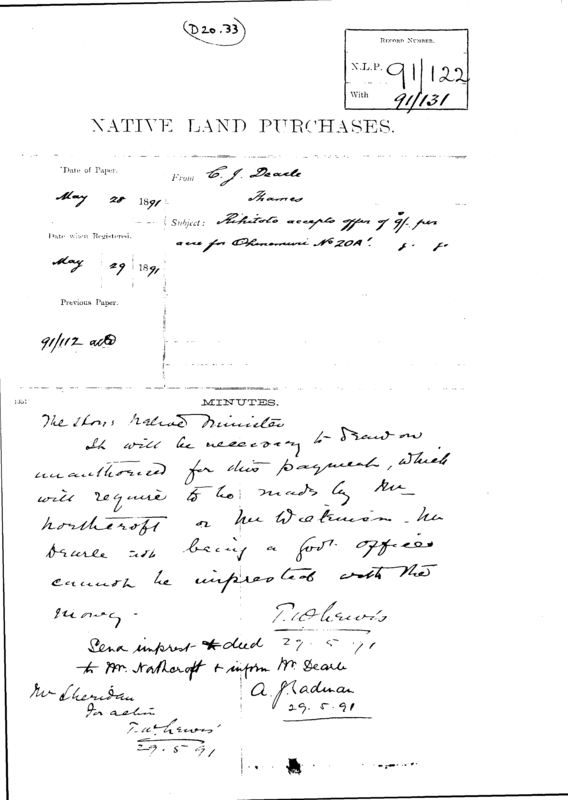 D20.33
RECORD NUMBER.
N.L.P. 91/122
With 91/131
NATIVE LAND PURCHASES.
Date of Paper.
May 28 1891
Date when Registered.
May 29 1891
Previous Paper.
91/112
From C. J. Dearle
Thames
Subject: Rihitoto accepts offer of 9/- per
acre for Ohinemuri No 20A
MINUTES.
The Hon: Native Minister
It will be necessary to draw on
unauthorised for this payment, which
will require to be made by Mr
Northcroft or Mr Wilkinson. Mr
Dearle not being a Govt officer
cannot be imprested with the
money.
T. W. Lewis
29.5.91
Send imprest & deed
to Mr. Northcroft & inform Mr Dearle
A. J. Cadman
29.5.91
Mr Sheridan
For action
T. W. Lewis
29.5.91